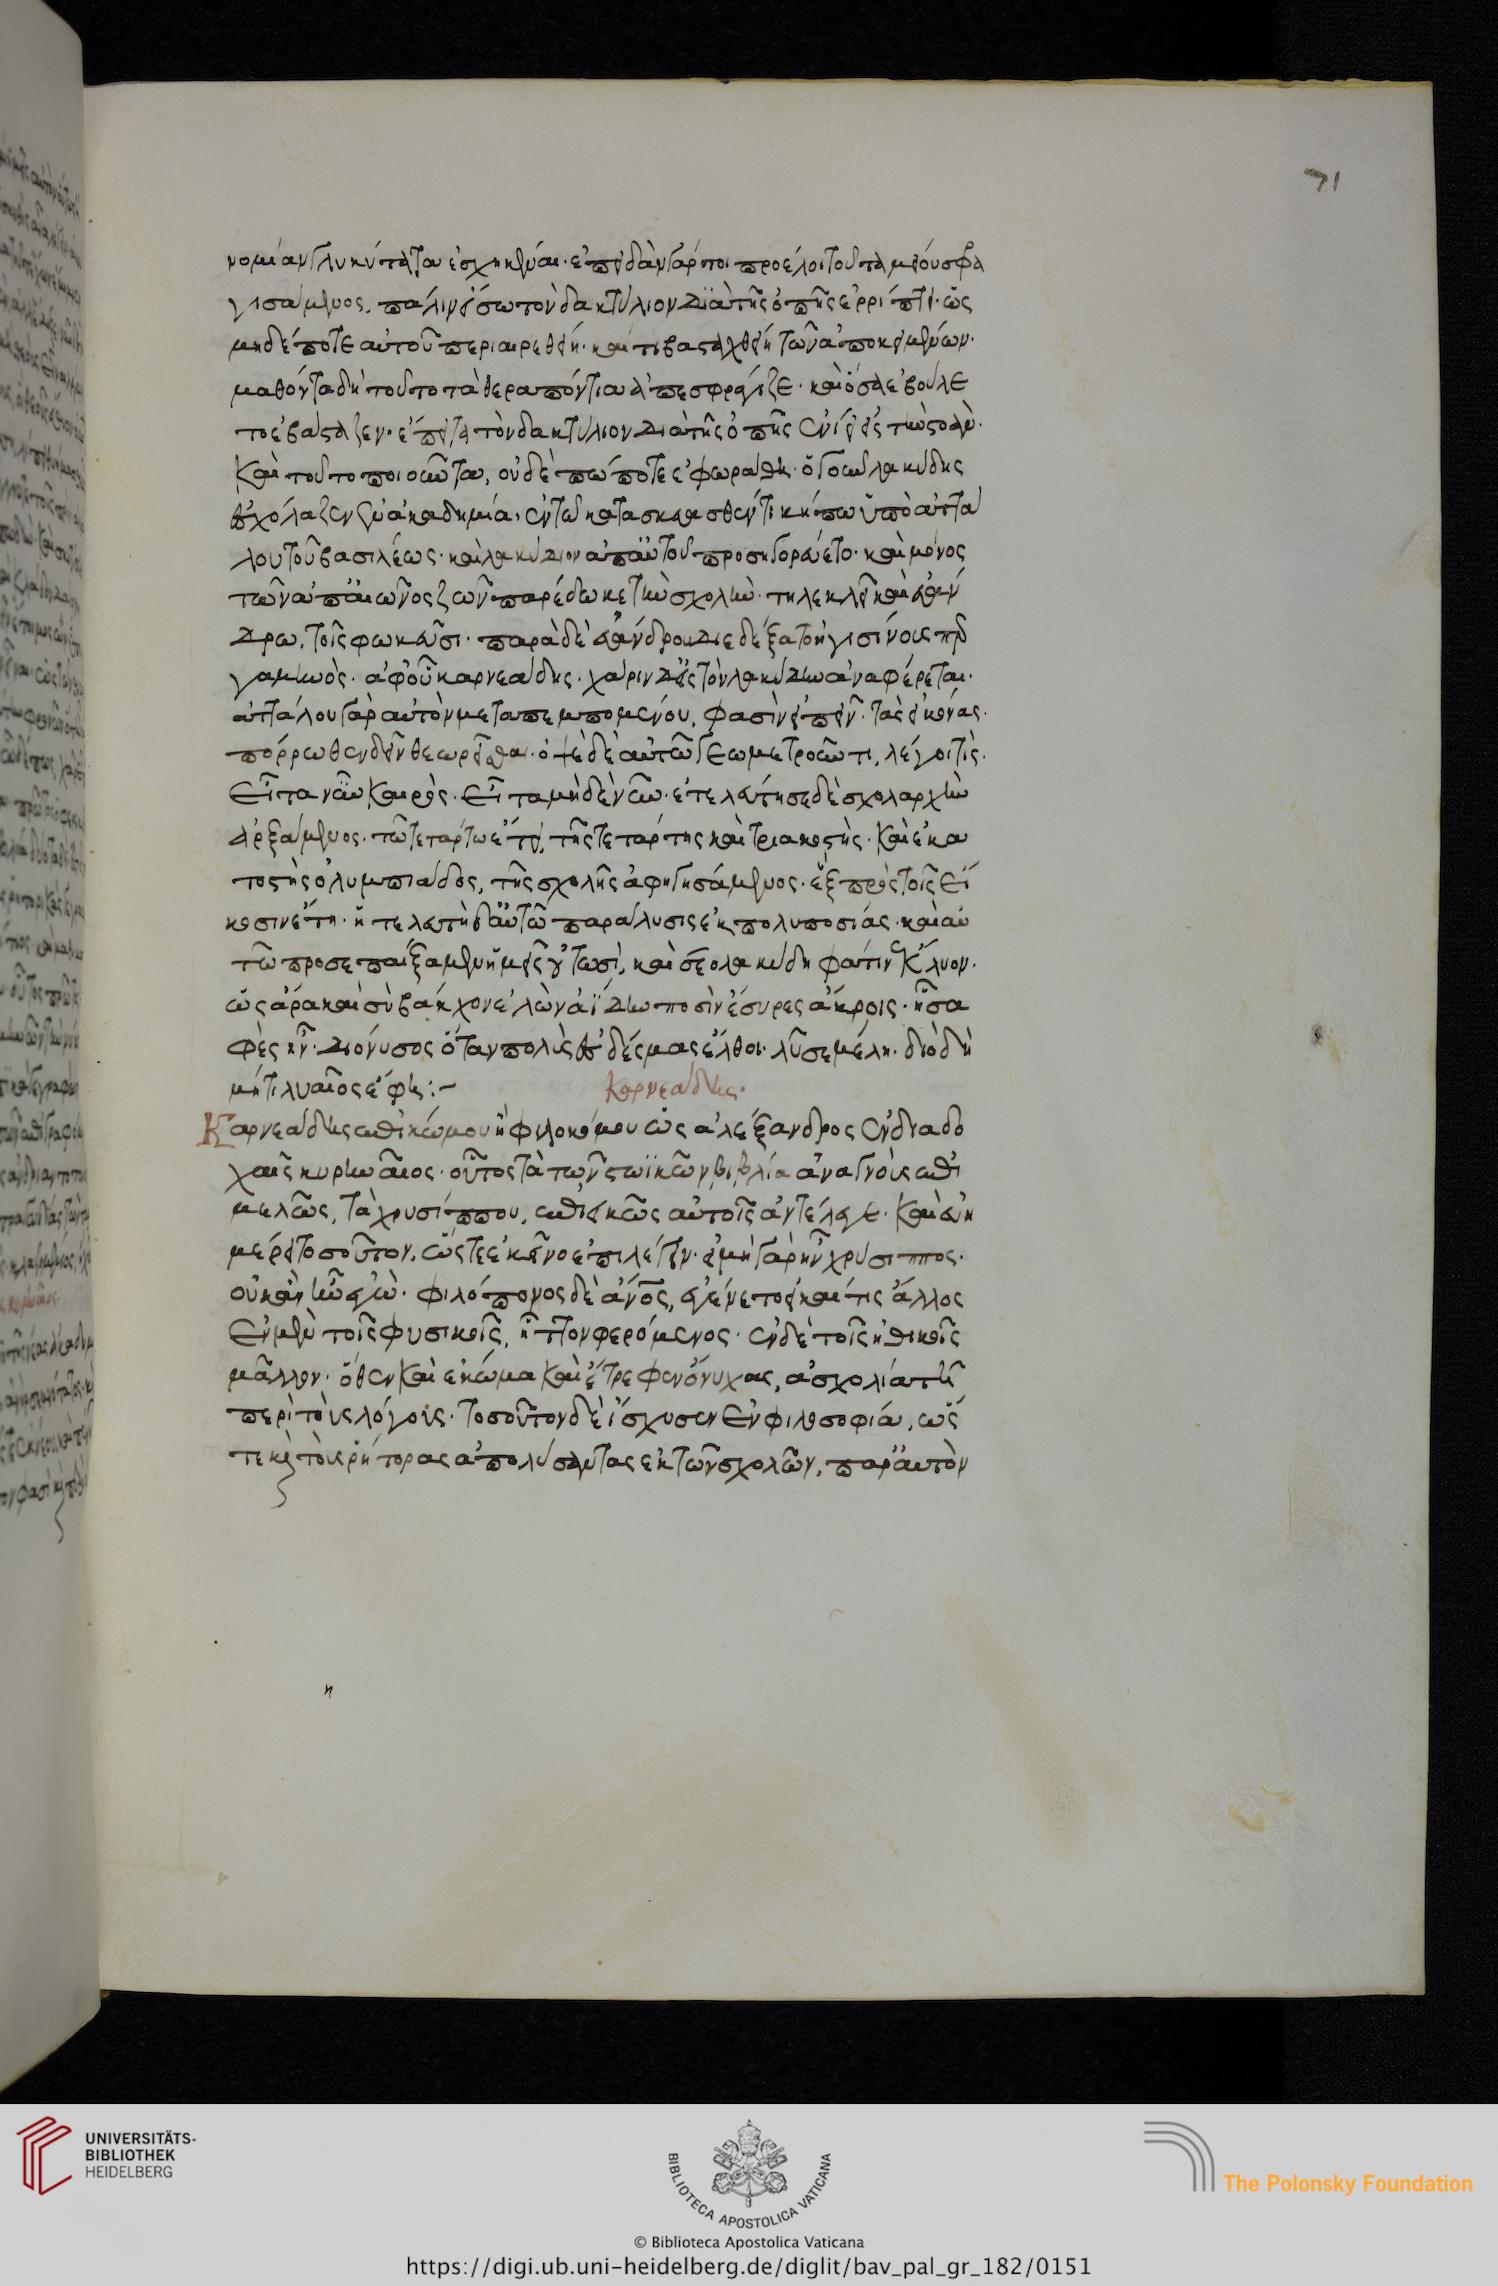 νομίαν γλυκύτατα ἐσχηκέναι· ἐπειδὰν γάρ τοι προέλοι τοῦ ταμιείου σφρα
γισάμενος, πάλιν εἴσω τὸν δακτύλιον διὰ τῆς ὀπῆς ἐρρίπτει· ὡς
μηδέποτε αὐτοῦ περιαιρεθείη· καί τι βασταχθείη τῶν ἀποκειμένων·
μαθόντα δὴ τοῦτο τὰ θεραπόντια ἀπεσφράγιζε· καὶ ὅσα ἐβούλε
το ἐβάσταζεν· ἔπειτα τὸν δακτύλιον διὰ τῆς ὀπῆς ἐνίει εἰς τὴν στοάν·
καὶ τοῦτο ποιοῦντα, οὐδὲ πώποτε ἐφωράθη· ὁ γοῦν λακύδης
ἐσχόλαζεν ἐν ἀκαδημία, ἐν τῶ κατασκευασθέντι κήπω ὑπὸ ἀττά
λου τοῦ βασιλέως· καὶ λακύδιον ἀπ' αὐτοῦ προσηγορεύετο· καὶ μόνος
τῶν ἀπ' αἰῶνος ζῶν παρέδωκε τὴν σχολὴν· τηλεκλεῖ καὶ εὐάν
δρω, τοῖς φωκεῦσι· παρὰ δὲ εὐάνδρου διεδέξατο ἡγισίνους περ
γαμηνὸς· ἀφ' οὗ καρνεάδης· χάριεν δ' εἰς τὸν λακύδην ἀναφέρεται·
ἀττάλου γὰρ αὐτὸν μεταπεμπομένου, φασὶν εἰπεῖν· τὰς εἰκόνας·
πόρρωθεν δεῖν θεωρεῖσθαι· ὀψὲ δὲ αὐτῶ γεωμετροῦντι, λέγει τίς·
εἶτα νῦν καιρὸς· εἶτα μηδὲ νῦν· ἐτελεύτησε δὲ σχολαρχεῖν
ἀρξάμενος· τῶ τετάρτω ἔτει, τῆς τετάρτης καὶ τριακοστῆς· καὶ ἑκα
τοστῆς ὀλυμπιάδος, τῆς σχολῆς ἀφηγησάμενος· ἓξ πρὸς τοῖς εἴ
κοσιν ἔτη· ἡ τελευτὴ δ' αὐτῶ παράλυσις ἐκ πολυποσίας· καὶ αὐ
τῶ προσεπαίξαμεν ἡμεῖς οὑτωσὶ, καὶ σέο λακύδη φάτιν ἔκλυον·
ὡς ἄρα καὶ σὺ βάκχον ἑλὼν ἀΐδην ποσὶν ἔσυρες ἄκροις· ἦ σα
φὲς ἦν· διόνυσος ὅταν πολὺς ἐς δέμας ἔλθοι· λῦσε μέλη· διὸ δὴ
μήτι λυαῖος ἔφυ:-
Καρνεάδης·
Καρνεάδης ἐπικώμου ἢ φιλοκώμου ὡς ἀλέξανδρος ἐν διαδο
χαῖς κυρηναῖος· οὗτος τὰ τῶν στωϊκῶν βιβλία ἀναγνοὺς ἐπι
μελῶς, τὰ χρυσίππου, ἐπιεικῶς αὐτοῖς ἀντέλεγε· καὶ εὐη
μέρει τοσοῦτον, ὥστε ἐκεῖνο ἐπιλέγειν· εἰ μὴ γὰρ ἦν χρύσιππος·
οὐκ ἂν ἦν ἐγὼ· φιλόπονος δὲ ἄνος, ἐγένετο εἰ καί τις ἄλλος
ἐν μὲν τοῖς φυσικοῖς, ἧττον φερόμενος· ἐν δὲ τοῖς ἠθικοῖς
μᾶλλον· ὅθεν καὶ ἐκόμα καὶ ἔτρεφεν ὄνυχας, ἀσχολία τῆ
περὶ τοὺς λόγους· τοσοῦτον δὲ ἴσχυσεν ἐν φιλοσοφία, ὥσ
τε καὶ τοὺς ῥήτορας ἀπολύσαντας ἐκ τῶν σχολῶν, παρ' αὐτὸν
71
UNIVERSITÄTS-
BIBLIOTHEK
HEIDELBERG
BIBLIOTECA APOSTOLICA VATICANA
The Polonsky Foundation
© Biblioteca Apostolica Vaticana
https://digi.ub.uni-heidelberg.de/diglit/bav_pal_gr_182/0151